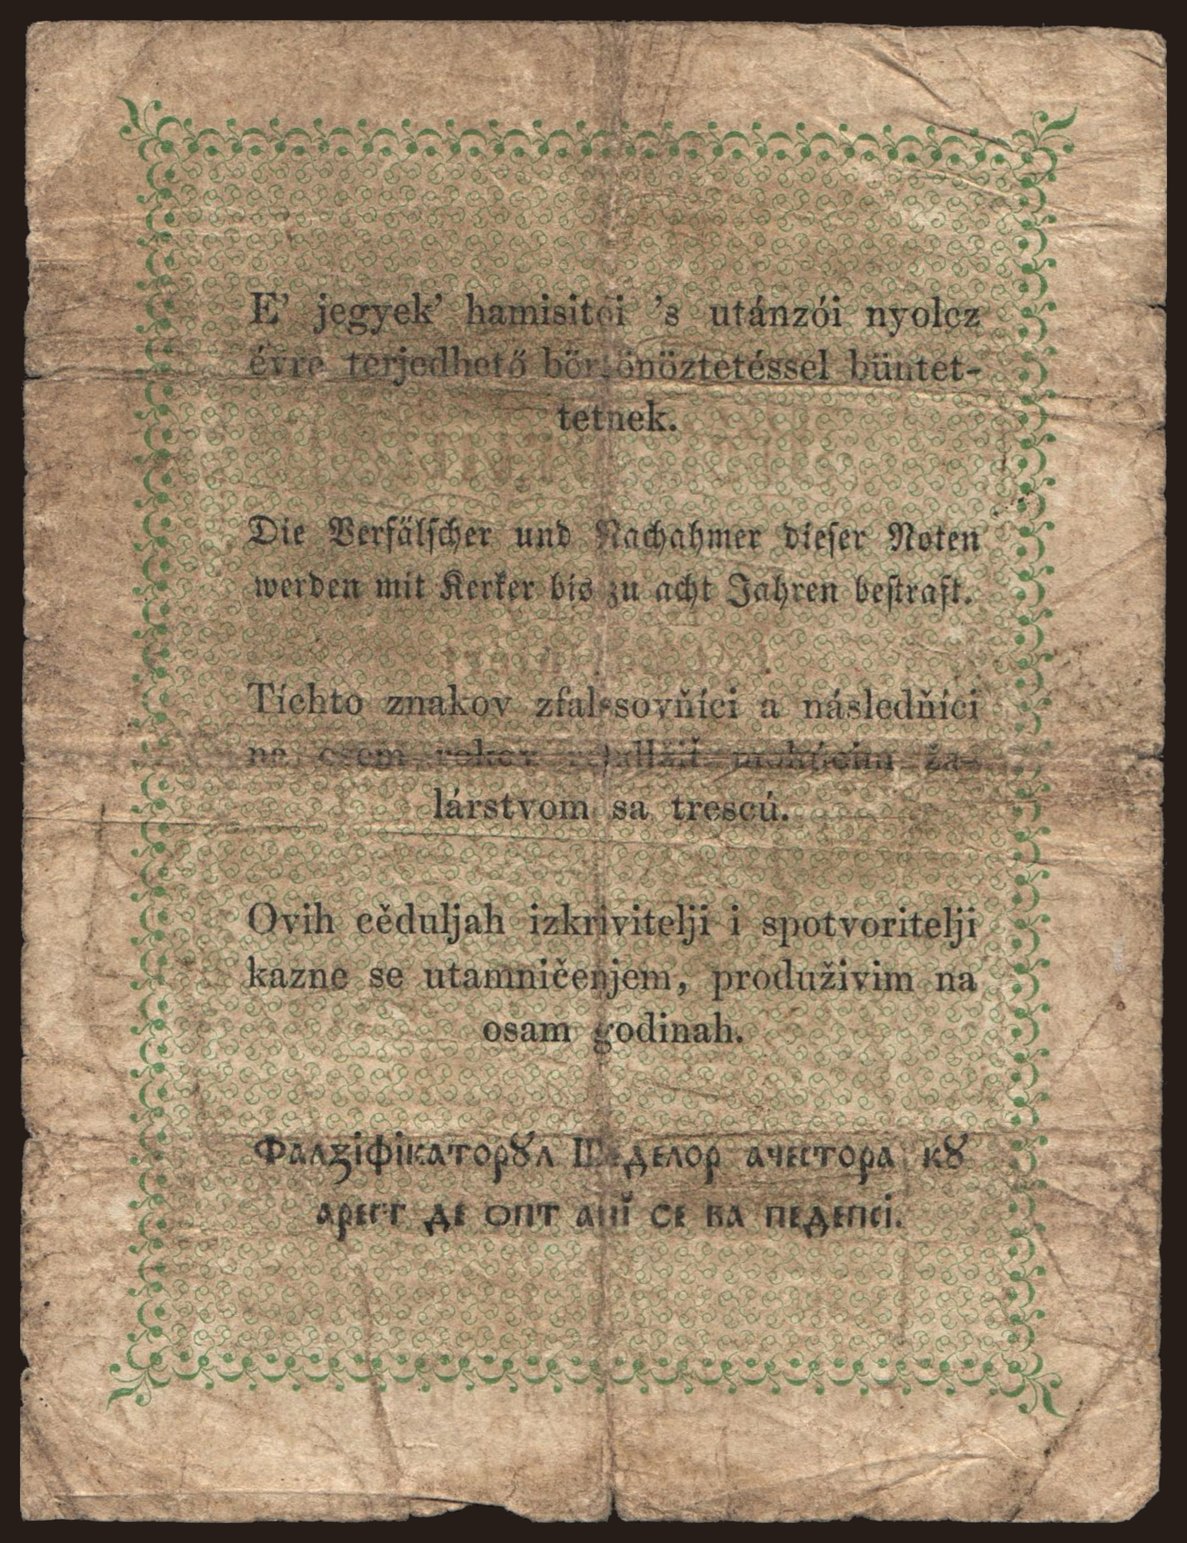 E’ jegyek’ hamisitói ’s utánzói nyolcz
évre terjedhető börtönöztetéssel büntet-
tetnek.
Die Verfälscher und Nachahmer dieser Noten
werden mit Kerker bis zu acht Jahren bestraft.
Tíchto znakov zfalšsovňíci a následňíci
na osem rokov ža-
lárstvom sa trescú.
Ovih cěduljah izkrivitelji i spotvoritelji
kazne se utamničenjem, produživim na
osam godinah.
Фалзіфікаторꙋл делор ачестора кꙋ
арест де опт анĭ се ва педепсі.